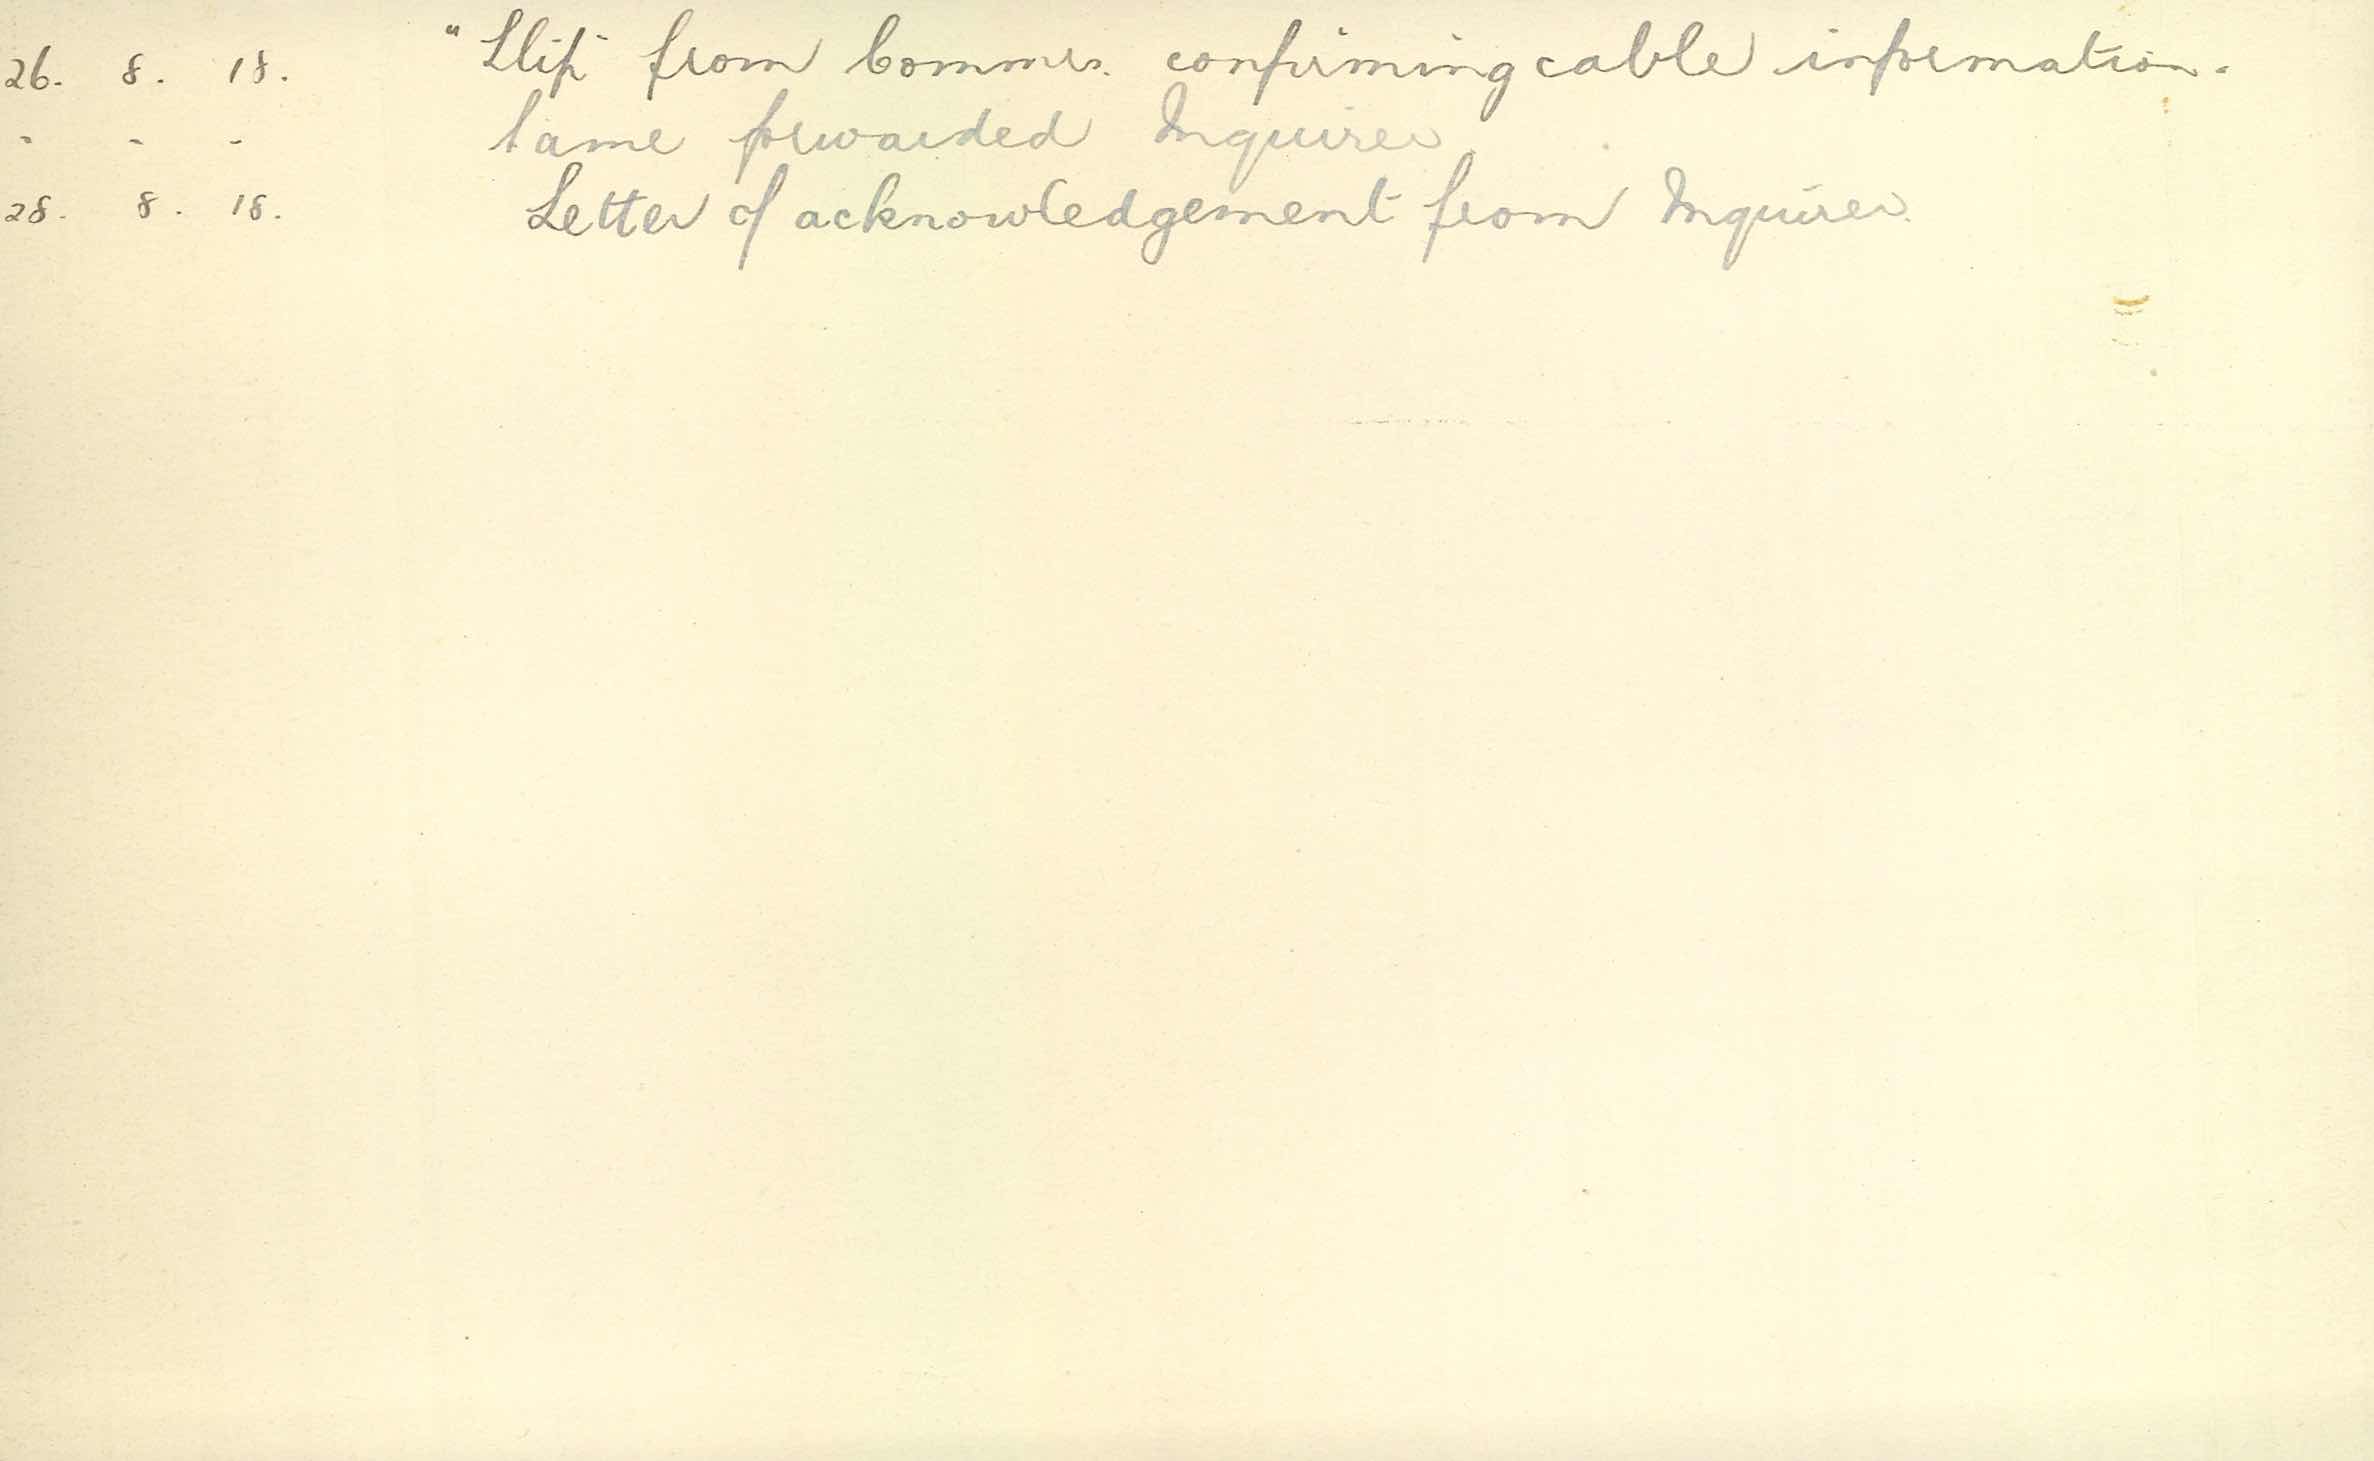 26. 8. 18. "Slip" from Commrs. confirming cable information.
" " " Same forwarded Inquirer.
28. 8. 18. Letter of acknowledgement from Inquirer.